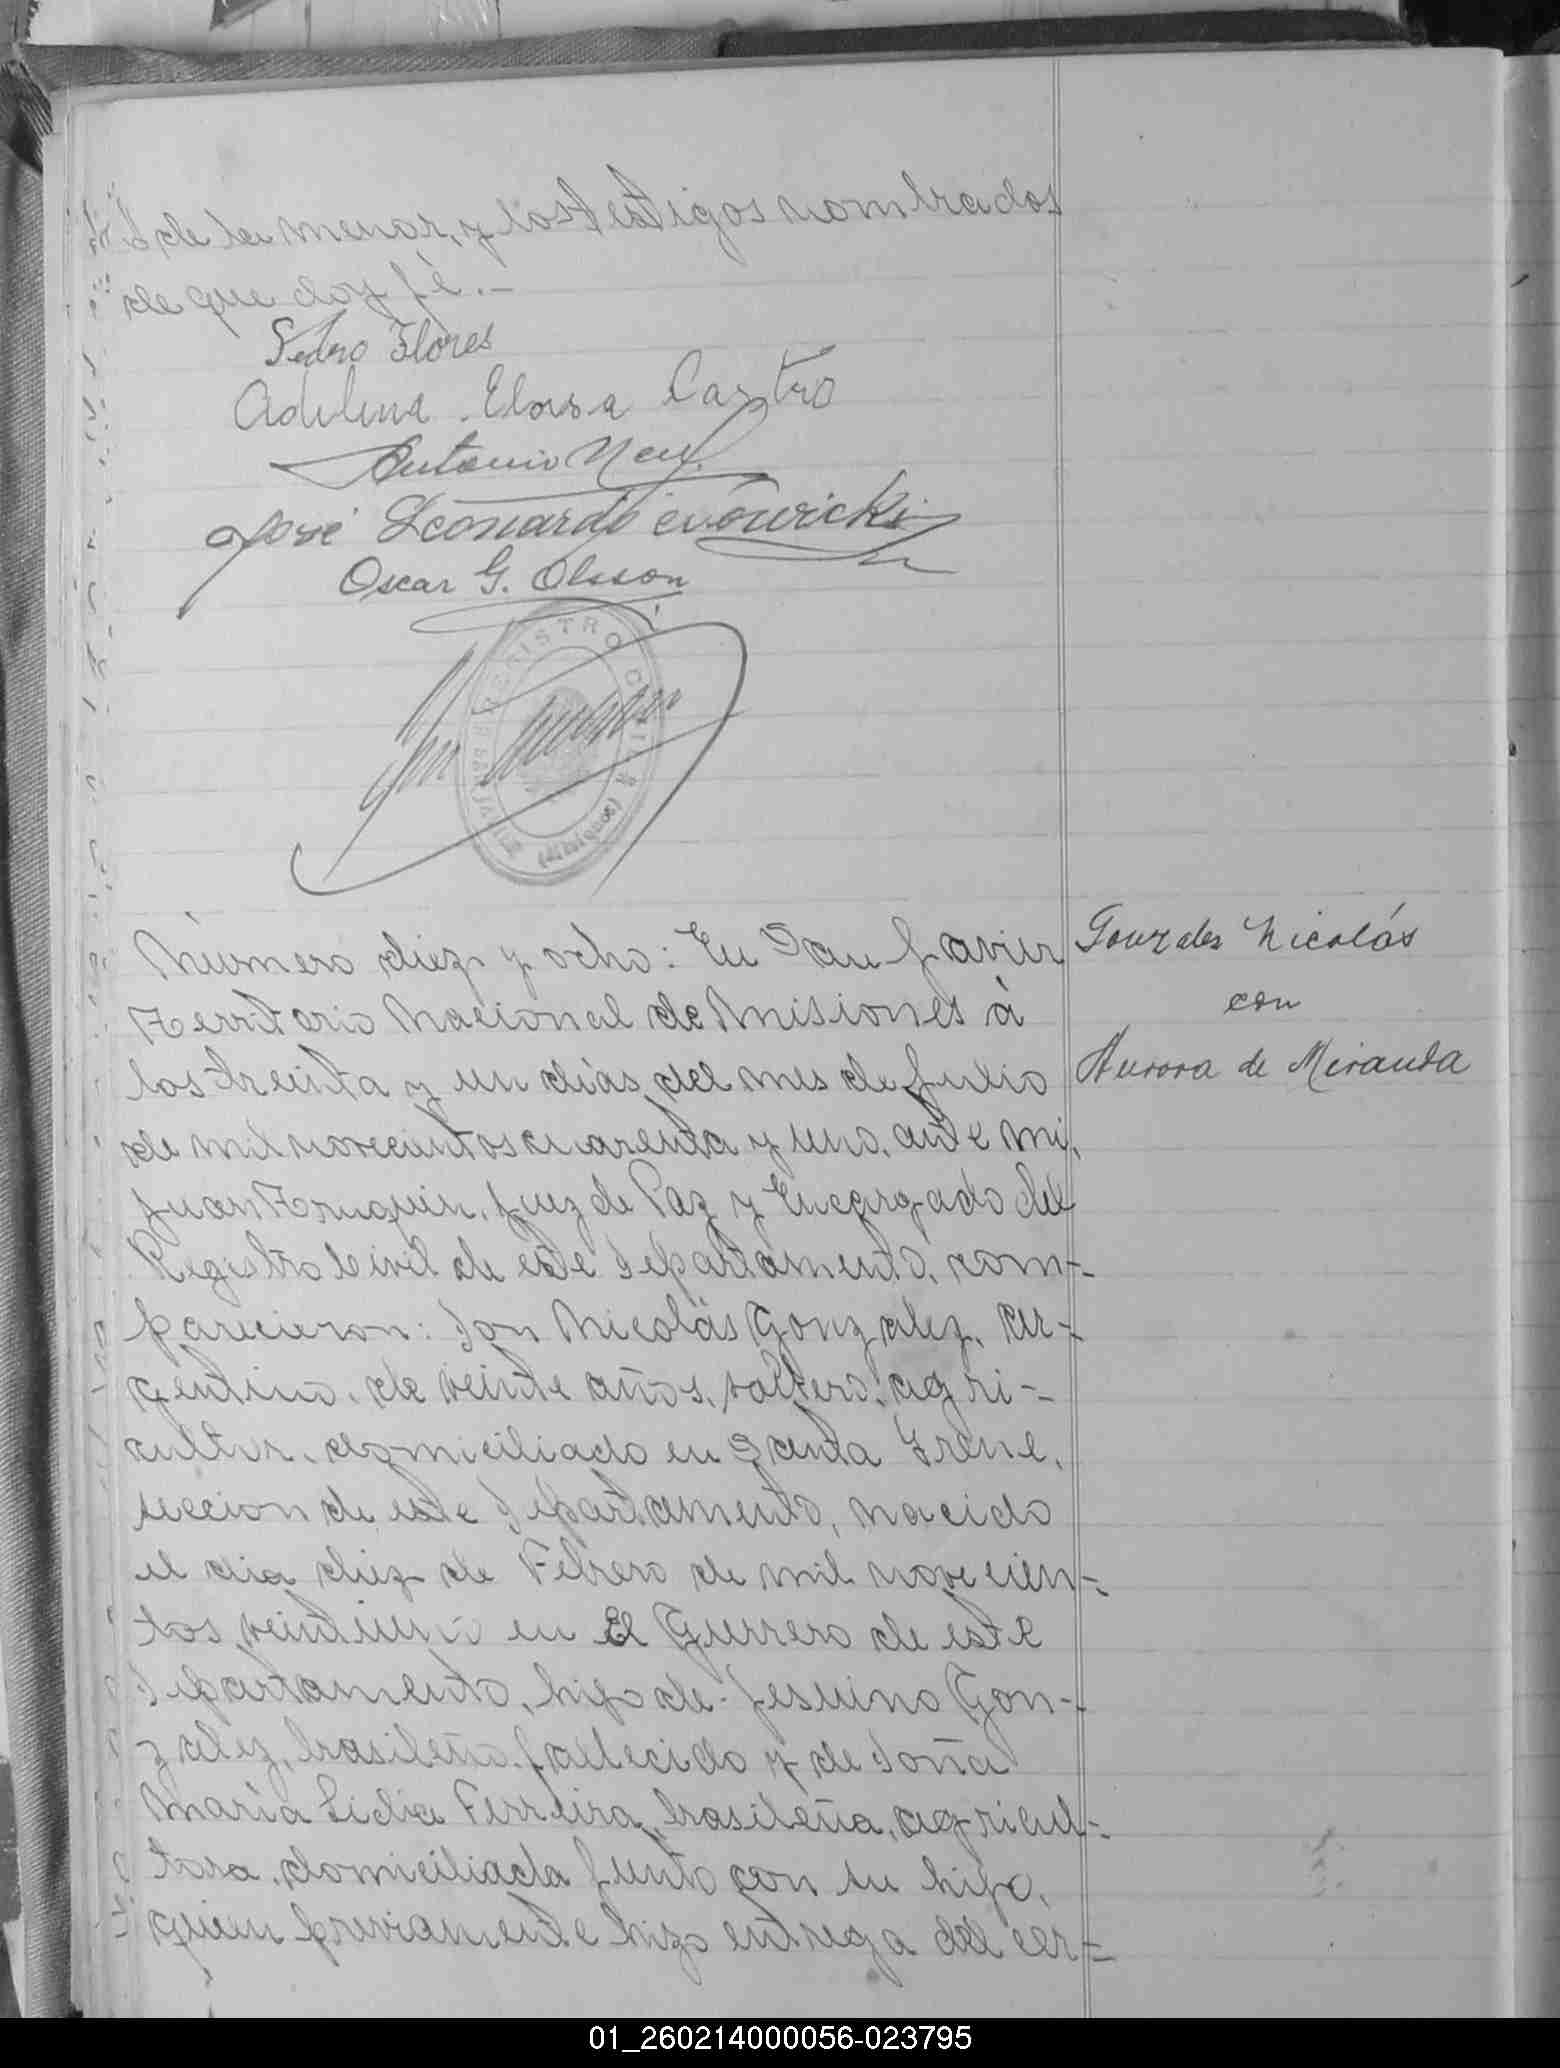 de la menor, y los testigos nombrados
de que doy fé.-
Pedro Flores
Adelina Eloisa Castro
Antonio
José Leonardo
Oscar G. Olsson
REGISTRO CIVIL
(Misiones)
Número diez y ocho: En San Javier
Territorio Nacional de Misiones à
los treinta y un dias del mes de Julio
de mil novecientos cuarenta y uno, ante mi,
Juan Juez de Paz y Encargado del
Registro Civil de este Departamento, com-
parecieron: Don Nicolás Gonzalez, ar-
gentino, de veinte años, soltero, agri-
cultor, domiciliado en Santa Irene,
seccion de este Departamento, nacido
el dia diez de Febrero de mil novecien-
tos veintiuno en El Guerrero de este
Departamento, hijo de Jesuino Gon-
zalez, brasileño, fallecido y de Doña
María Lidia Ferreira, brasileña, agricul-
tora, domiciliada junto con su hijo,
quien previamente hizo entrega del cer-
Gonzales Nicolás
con
Aurora de Miranda
01_260214000056-023795